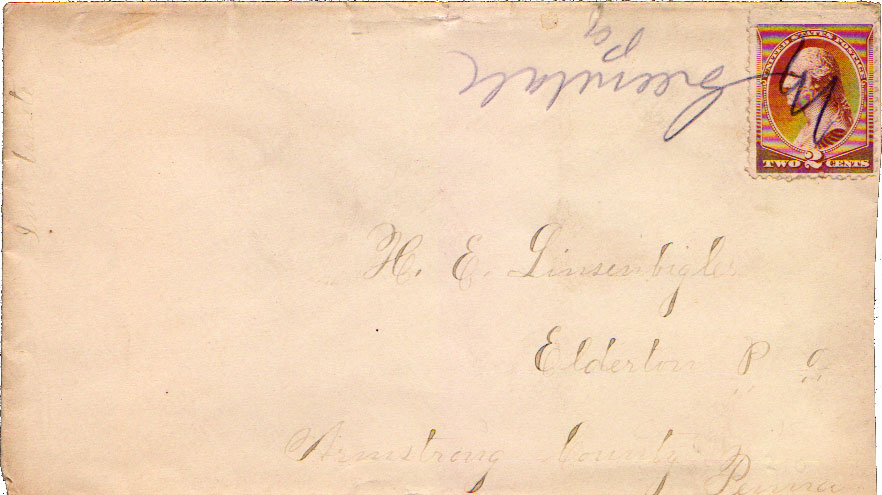 UNITED STATES POSTAGE
TWO 2 CENTS
Greendale
Pa
H. E. Linsenbigler
Elderton P. O.
Armstrong County
Penna